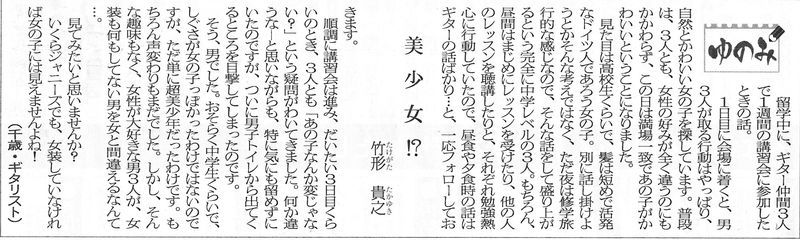 ゆのみ
美少女!?
竹形 貴之
たけがた たかゆき
留学中に、ギター仲間３人
で１週間の講習会に参加した
ときの話。
１日目に会場に着くと、男
３人が取る行動はやっぱり、
自然とかわいい女の子を探しています。普段
は、３人とも、女性の好みが全く違うのにも
かかわらず、この日は満場一致であの子がか
わいいということになりました。
見た目は高校生くらいで、髪は短めで活発
なドイツ人であろう女の子。別に話し掛けよ
うとかそんな考えではなく、ただ夜は修学旅
行的な感じなので、そんな話をして盛り上が
るという完全に中学レベルの３人。もちろん、
昼間はまじめにレッスンを受けたり、他の人
のレッスンを聴講したりと、それぞれ勉強熱
心に行動していたので、昼食や夕食時の話は
ギターの話ばかり…と、一応フォローしてお
きます。
順調に講習会は進み、だいたい３日目くら
いのとき、３人とも「あの子なんか変じゃな
い？」という疑問がわいてきました。何か違
うなーと思いながらも、特に気にも留めずに
いたのですが、ついに男子トイレから出てく
るところを目撃してしまったのです。
そう、男でした。おそらく中学生くらいで、
しぐさが女の子っぽかったわけではないので
すが、ただ単に超美少年だったわけです。も
ちろん声変わりもまだでした。しかし、そん
な趣味もなく、女性が大好きな男３人が、女
装も何もしてない男を女と間違えるなんて
…。
見てみたいと思いませんか？
いくらジャニーズでも、女装していなけれ
ば女の子には見えませんよね！
（千歳・ギタリスト）